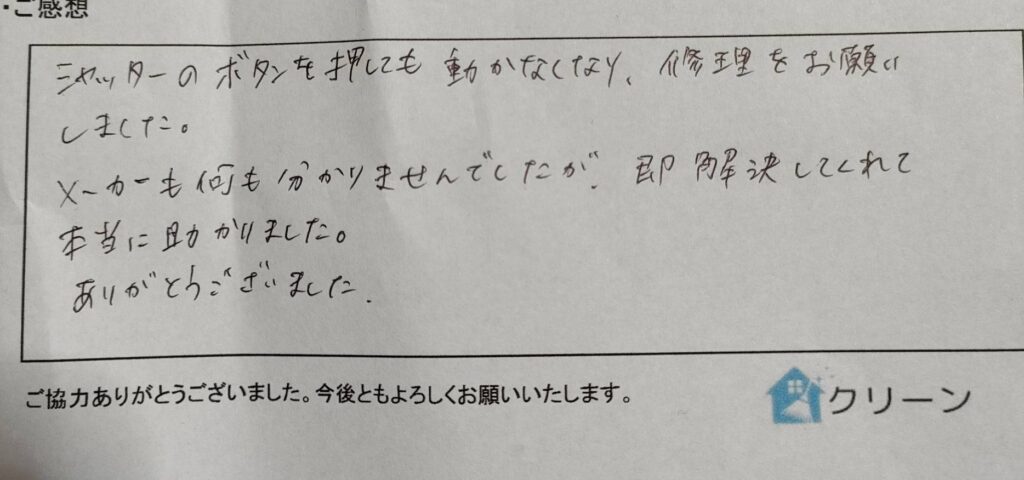 ・ご感想
シャッターのボタンを押しても動かなくなり、修理をお願い
しました。
メーカーも何も分かりませんでしたが、即解決してくれて
本当に助かりました。
ありがとうございました.
ご協力ありがとうございました。今後ともよろしくお願いいたします。
クリーン